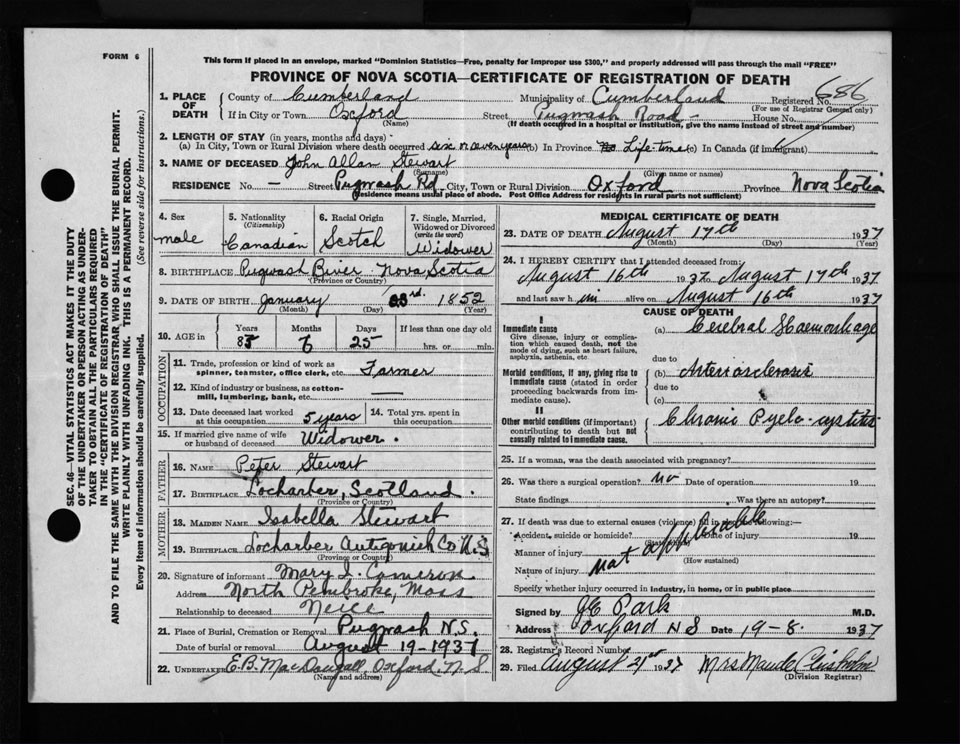 FORM 6
This form if placed in an envelope, marked "Dominion Statistics—Free, penalty for improper use $300," and properly addressed will pass through the mail "FREE"
PROVINCE OF NOVA SCOTIA—CERTIFICATE OF REGISTRATION OF DEATH
686
1. PLACE OF DEATH
County of Cumberland Municipality of Cumberland Registered No.
(For use of Registrar General only)
If in City or Town Oxford Street Pugwash Road — House No.
(Name) (If death occurred in a hospital or institution, give the name instead of street and number)
2. LENGTH OF STAY (in years, months and days)
(a) In City, Town or Rural Division where death occurred six or seven years (b) In Province Life time (c) In Canada (if immigrant)
3. NAME OF DECEASED John Allan Stewart
(Surname) (Given name or names)
RESIDENCE No. — Street Pugwash Rd City, Town or Rural Division Oxford Province Nova Scotia
(Residence means usual place of abode. Post Office Address for residents in rural parts not sufficient)
4. Sex male
5. Nationality (Citizenship) Canadian
6. Racial Origin Scotch
7. Single, Married, Widowed or Divorced (write the word) Widower
8. BIRTHPLACE Pugwash River Nova Scotia
(Province or Country)
9. DATE OF BIRTH January 23rd. 1852
(Month) (Day) (Year)
10. AGE in Years 85 Months 6 Days 25 If less than one day old hrs. or min.
OCCUPATION
11. Trade, profession or kind of work as spinner, teamster, office clerk, etc. Farmer
12. Kind of industry or business, as cotton-mill, lumbering, bank, etc. —
13. Date deceased last worked at this occupation 5 years
14. Total yrs. spent in this occupation
15. If married give name of wife or husband of deceased Widower.
FATHER
16. NAME Peter Stewart
17. BIRTHPLACE Locharber, Scotland.
(Province or Country)
MOTHER
18. MAIDEN NAME Isabella Stewart
19. BIRTHPLACE Locharber Antigonish Co N.S
(Province or Country)
20. Signature of informant Mary I. Cameron
Address North Pembroke, Mass
Relationship to deceased Neice
21. Place of Burial, Cremation or Removal Pugwash N.S.
Date of burial or removal August 19-1937
22. UNDERTAKER E.B. MacDougall Oxford, N.S
(Name and address)
MEDICAL CERTIFICATE OF DEATH
23. DATE OF DEATH August 17th 1937
(Month) (Day) (Year)
24. I HEREBY CERTIFY that I attended deceased from:
August 16th 1937 to August 17th 1937
and last saw him alive on August 16th 1937
CAUSE OF DEATH
I
Immediate cause
Give disease, injury or complication which caused death, not the mode of dying, such as heart failure, asphyxia, asthenia, etc
(a) Cerebral Haemorrhage
due to
Morbid conditions, if any, giving rise to immediate cause (stated in order proceeding backwards from immediate cause).
(b) Arteriosclerosis
due to
(c)
II
Other morbid conditions (if important) contributing to death but not causally related to immediate cause.
Chronic Pyelo-cystitis
25. If a woman, was the death associated with pregnancy?
26. Was there a surgical operation? no Date of operation 19
State findings Was there an autopsy?
27. If death was due to external causes (violence) fill in also the following:—
Accident, suicide or homicide? Date of injury 19
Manner of injury
(How sustained)
Nature of injury
not applicable
Specify whether injury occurred in industry, in home, or in public place
Signed by J E Park M.D.
Address Oxford N S Date 19-8. 1937
28. Registrar's Record Number
29. Filed August 21st 1937 Mrs Maude Chisholm
(Division Registrar)
SEC. 46—VITAL STATISTICS ACT MAKES IT THE DUTY
OF THE UNDERTAKER OR PERSON ACTING AS UNDER-
TAKER TO OBTAIN ALL THE PARTICULARS REQUIRED
IN THE "CERTIFICATE OF REGISTRATION OF DEATH"
AND TO FILE THE SAME WITH THE DIVISION REGISTRAR WHO SHALL ISSUE THE BURIAL PERMIT.
WRITE PLAINLY WITH UNFADING INK. THIS IS A PERMANENT RECORD.
Every item of information should be carefully supplied. (See reverse side for instructions.)